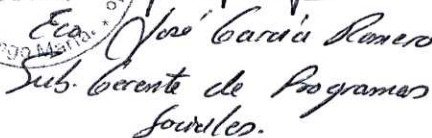 Eco. José García Romero
ngo María
Sub. Gerente de Programas
Sociales.